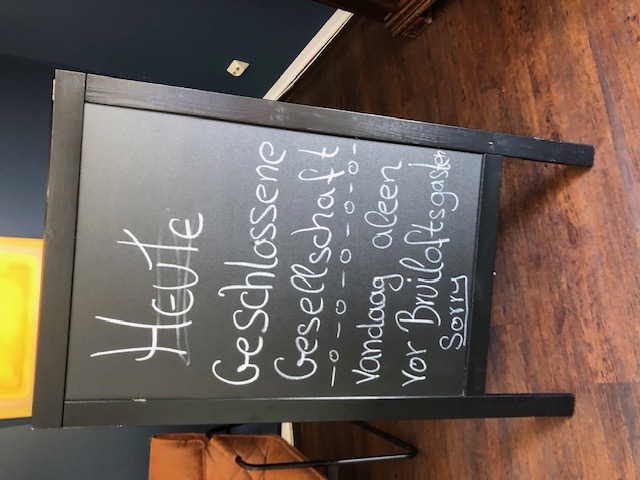 Heute
Geschlossene
Gesellschaft
-o-o-o-o-o-
Vandaag aleen
vor Bruiloftsgasten
Sorry